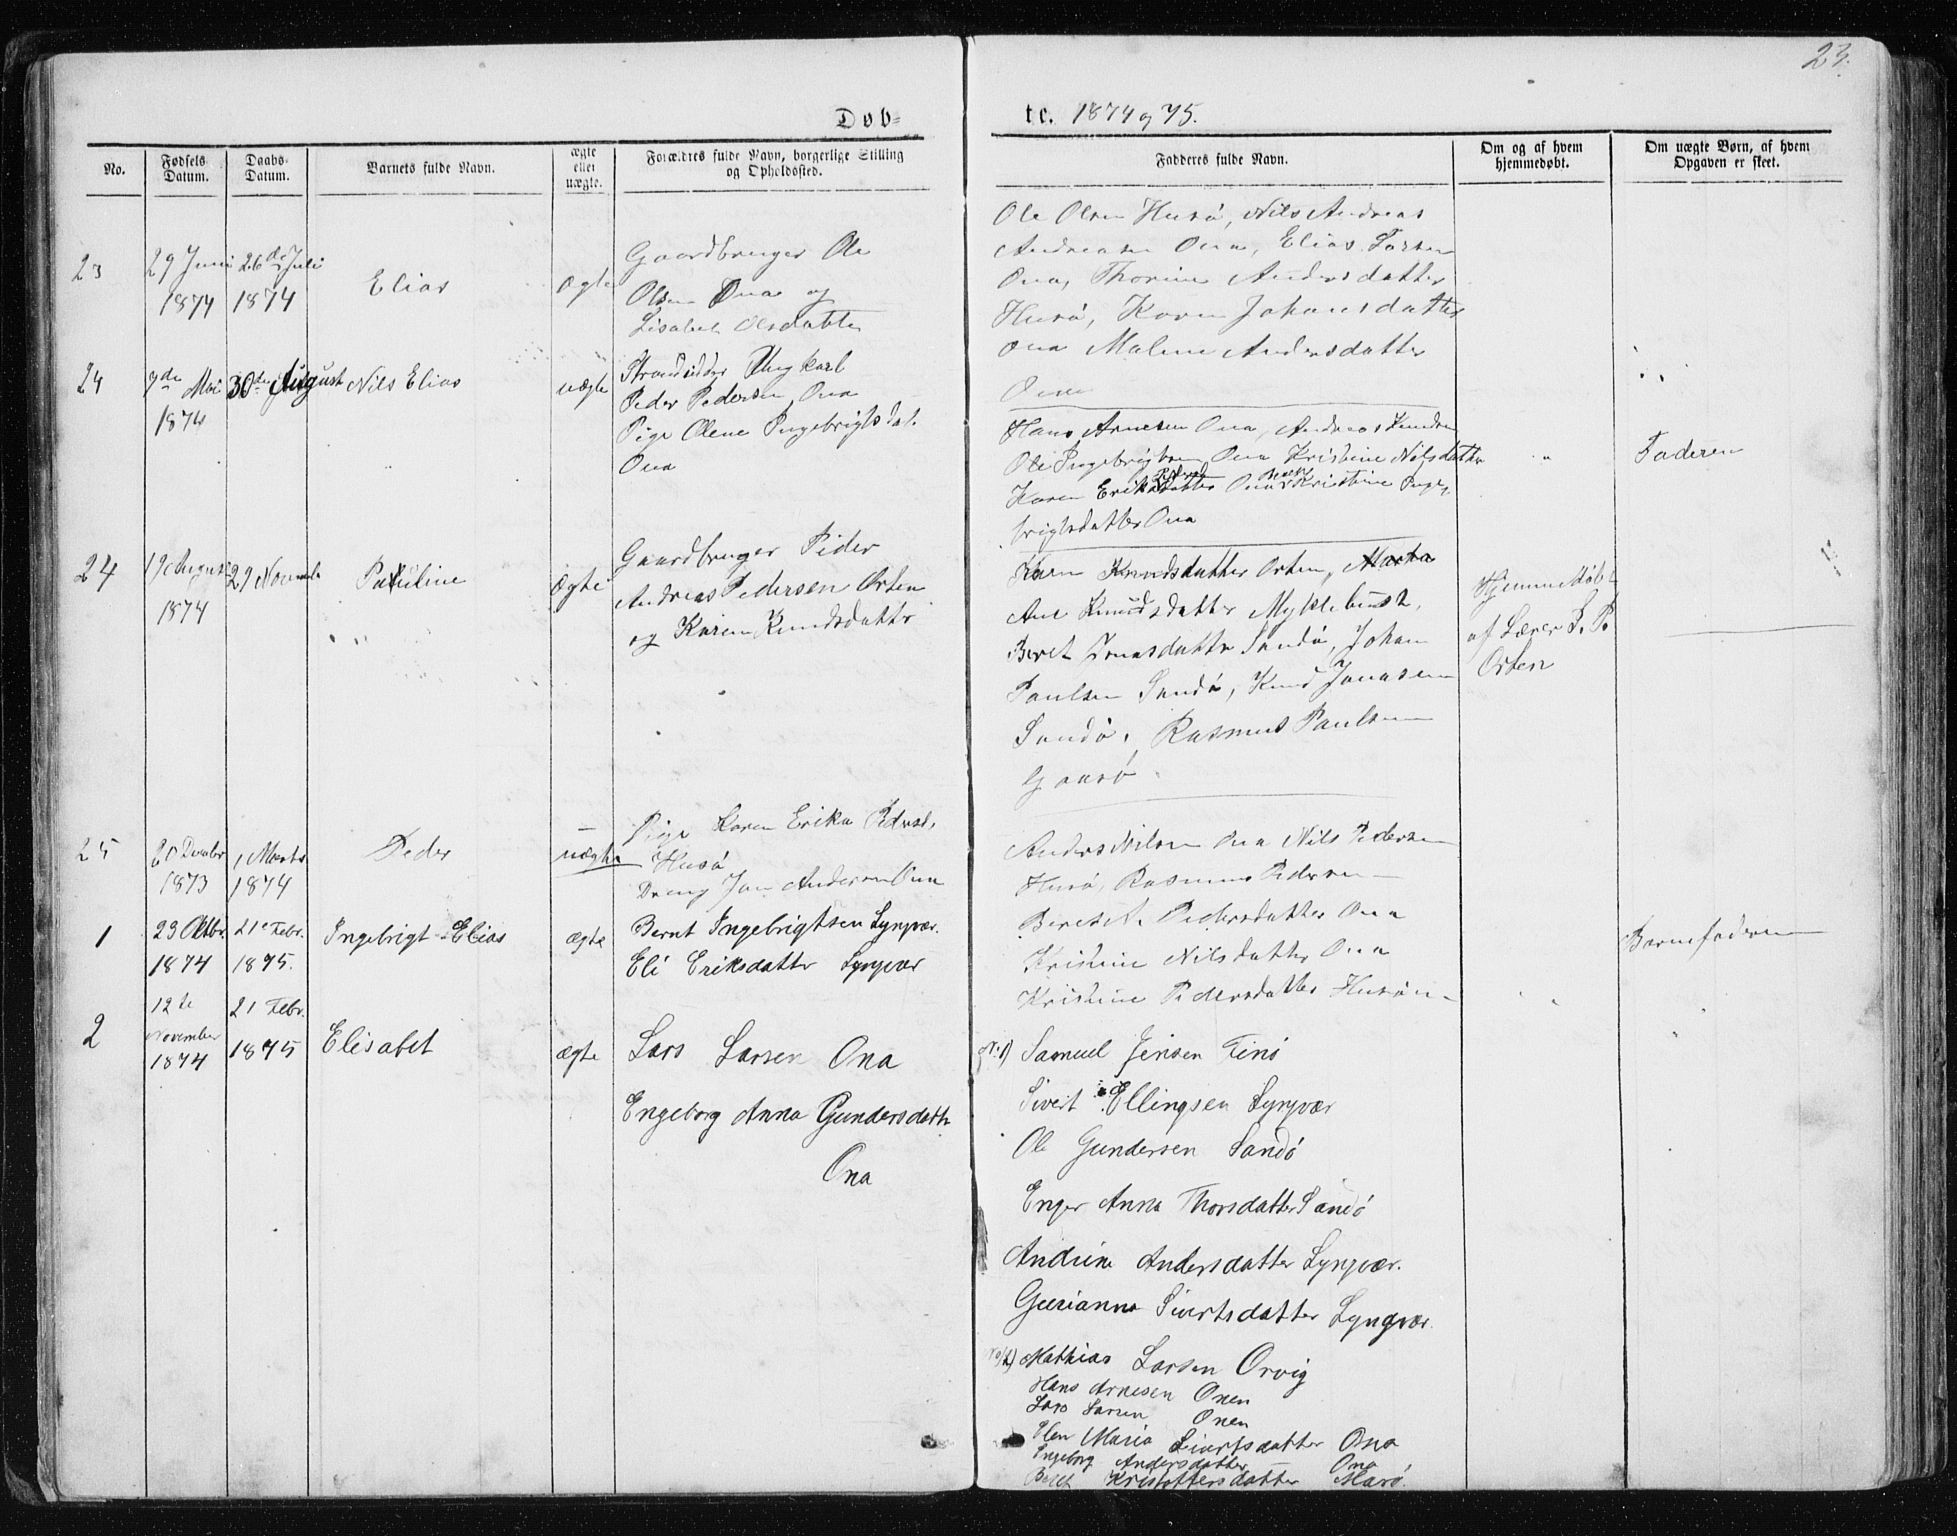 23.
Døb=
te. 1874 og 75.
No.
Fødsels Datum.
Daabs-Datum.
Barnets fulde Navn.
ægte eller uægte.
Forældres fulde Navn, borgerlige Stilling og Opholdssted.
Fadderes fulde Navn.
Om og af hvem hjemmedøbt.
Om uægte Børn, af hvem Opgaven er skeet.
23
29 Juni 1874
26de Juli 1874
Elias
ægte
Gaardbruger Ole
Olsen Ona og
Lisabet Olsdatter
Ole Olsen Husø, Nils Andreas
Andreasen Ona, Elias Larsen
Ona, Thorine Andersdatter
Husø, Karen Johansdatter
Ona Malene Andersdatter
Ona
24
7de Mai 1874
30de August
Nils Elias
uægte
Strandsidder Ungkarl
Peder Pedersen Ona
Pige Olene Ingebrigtsdat.
Ona
Hans Arnesen Ona, Andreas Knudsen
Ole Ingebrigtsen Ona Kristine Nilsdatter
Karen Eriksdatter Ona Kristine Inge-
brigtsdatter Ona
Faderen
24
19 August 1874
29 November
Pauline
Ægte
Gaardbruger Peder
Andreas Pedersen Orten
og Karen Knudsdatter
Karen Knudsdatter Orten, Marta
Ane Knudsdatter Myklebust,
Beret Jonasdatter Sandø, Johan
Paulsen Sandø, Knud Jonasen
Sandø, Rasmus Paulsen
Gaasø
Hjemmedøbt
af Lærer S. P.
Orten
25
20 December 1873
1 Marts 1874
Peder
uægte
Pige Karen Erika Pedersd.
Husø
Dreng Jan Andersen Ona
Anders Nilsen Ona Nils Pedersen
Husø, Rasmus Pedersen
Pedersdatter Ona
Kristine Nilsdatter Ona
Kristine Pedersdatter Husøen
Barnefaderen
1
23 Oktbr. 1874
21e Febr. 1875.
Ingebrigt Elias
ægte
Bernt Ingebrigtsen Lyngvær.
Eli Eriksdatter Lyngvær
2
12te November 1874
21 Febr. 1875
Elisabet
ægte
Lars Larsen Ona
Engeborg Anna Gundersdatter
Ona
No. 1) Samuel Jensen Finø
Sivert Ellingsen Lyngvær
Ole Gundersen Sandø
Enger Anna Thorsdatter Sandø
Andrine Andersdatter Lyngvær.
Gurianna Sivertsdatter Lyngvær.
No 2) Mathias Larsen Orvig
Hans Arnesen Onen
Lars Larsen Onen
Elen Maria Sivertsdatter Ona
Ingeborg Andersdatter Ona
Beret Kristoffersdatter Marø.